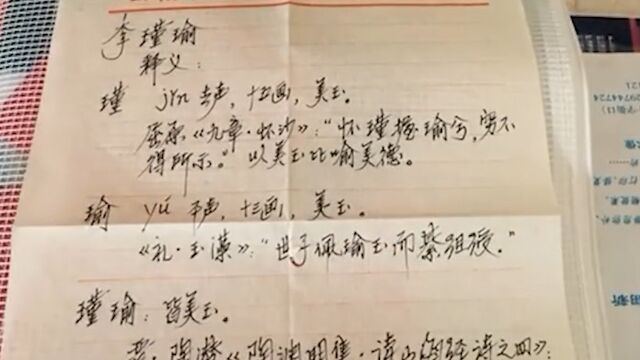 李瑾瑜
释义：
瑾 jìn 去声，十五画，美玉。
屈原《九章·怀沙》："怀瑾握瑜兮，穷不
得所示。"以美玉比喻美德。
瑜 yú 平声，十三画，美玉。
《礼·玉藻》："世子佩瑜玉而綦组绶。"
瑾瑜：皆美玉。
晋·陶潜《陶渊明集·读山海经诗之四》：